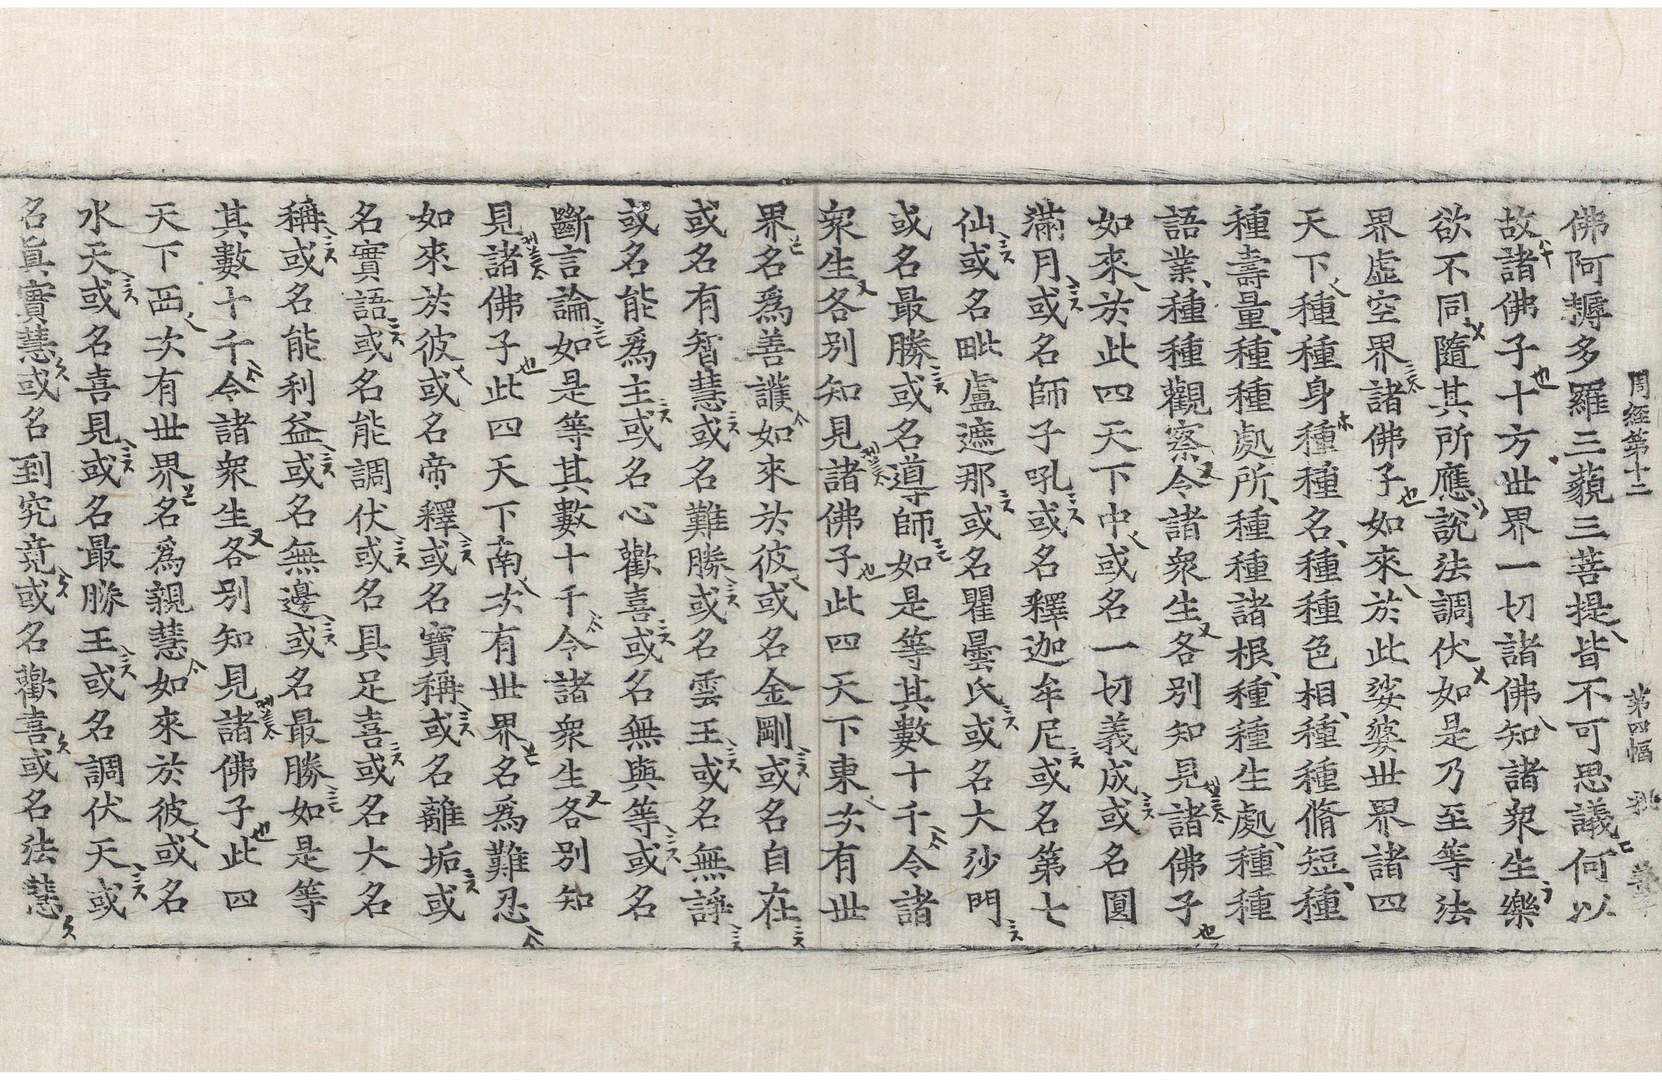 周經第十二 第四幅
佛阿耨多羅三藐三菩提皆不可思議何以
故諸佛子十方世界一切諸佛知諸衆生樂
欲不同隨其所應說法調伏如是乃至等法
界虛空界諸佛子如來於此娑婆世界諸四
天下種種身種種名種種色相種種脩短種
種壽量種種處所種種諸根種種生處種種
語業種種觀察令諸衆生各別知見諸佛子
如來於此四天下中或名一切義成或名圓
滿月或名師子吼或名釋迦牟尼或名第七
仙或名毗盧遮那或名瞿曇氏或名大沙門
或名最勝或名導師如是等其數十千令諸
衆生各別知見諸佛子此四天下東次有世
界名爲善護如來於彼或名金剛或名自在
或名有智慧或名難勝或名雲王或名無諍
或名能爲主或名心歡喜或名無與等或名
斷言論如是等其數十千令諸衆生各別知
見諸佛子此四天下南次有世界名爲難忍
如來於彼或名帝釋或名寶稱或名離垢或
名實語或名能調伏或名具足喜或名大名
稱或名能利益或名無邊或名最勝如是等
其數十千令諸衆生各別知見諸佛子此四
天下西次有世界名爲親慧如來於彼或名
水天或名喜見或名最勝王或名調伏天或
名眞實慧或名到究竟或名歡喜或名法慧